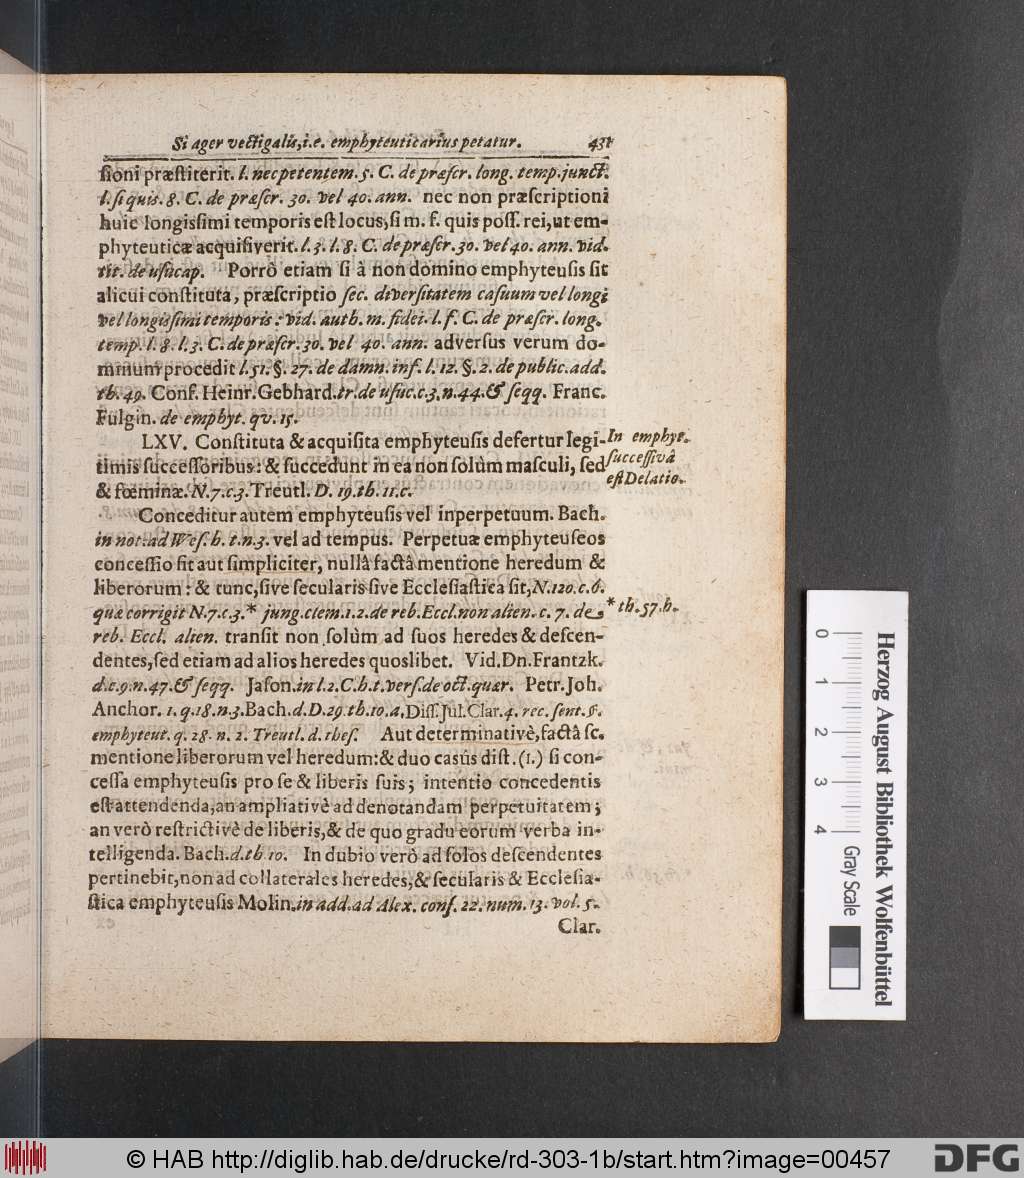 Si ager vectigalis, i.e. emphyteuticarius petatur. 431
ſioni præſtiterit. l. nec petentem. 5. C. de præſcr. long. temp. junct.
l. ſi quis. 8. C. de præſcr. 30. vel 40. ann. nec non præſcriptioni
huic longiſſimi temporis eſt locus, ſi m. f. quis poſſ. rei, ut em-
phyteuticæ acquiſiverit. l. 3. l. 8. C. de præſcr. 30. vel 40. ann. vid.
tit. de uſucap. Porrò etiam ſi à non domino emphyteuſis ſit
alicui conſtituta, præſcriptio ſec. diverſitatem caſuum vel longi
vel longiſſimi temporis: vid. auth. m. fidei. l. f. C. de præſcr. long.
temp. l. 8. l. 3. C. de præſcr. 30. vel 40. ann. adverſus verum do-
minum procedit l. 51. §. 27. de damn. inf. l. 12. §. 2. de public. add.
th. 49. Conf. Heinr. Gebhard. tr. de uſuc. c. 3. n. 44. & ſeqq. Franc.
Fulgin. de emphyt. qv. 15.
LXV. Conſtituta & acquiſita emphyteuſis defertur legi-
timis ſucceſſoribus: & ſuccedunt in ea non ſolùm maſculi, ſed
& fœminæ. N. 7. c. 3. Treutl. D. 19. th. 11. c.
In emphyt.
ſucceſſivâ
eſt Delatio.
Conceditur autem emphyteuſis vel inperpetuum. Bach.
in not. ad Weſ. h. t. n. 3. vel ad tempus. Perpetuæ emphyteuſeos
conceſſio fit aut ſimpliciter, nullâ factâ mentione heredum &
liberorum: & tunc, ſive ſecularis ſive Eccleſiaſtica ſit, N. 120. c. 6.
quæ corrigit N. 7. c. 3. * jung. clem. 1. 2. de reb. Eccl. non alien. c. 7. de
* th. 57. h.
reb. Eccl. alien. tranſit non ſolùm ad ſuos heredes & deſcen-
dentes, ſed etiam ad alios heredes quoslibet. Vid. Dn. Frantzk.
d. c. 9. n. 47. & ſeqq. Jaſon. in l. 2. C. h. t. verſ. de oct. quær. Petr. Joh.
Anchor. 1. q. 18. n. 3. Bach. d. D. 29. th. 10. a. Diſſ. Jul. Clar. 4. rec. ſent. §.
emphyteut. q. 28. n. 2. Treutl. d. theſ. Aut determinativè, factâ ſc.
mentione liberorum vel heredum: & duo caſûs diſt. (1.) ſi con-
ceſſa emphyteuſis pro ſe & liberis ſuis; intentio concedentis
eſt attendenda, an ampliativè ad denotandam perpetuitatem;
an verò reſtrictivè de liberis, & de quo gradu eorum verba in-
telligenda. Bach. d. th. 10. In dubio verò ad ſolos deſcendentes
pertinebit, non ad collaterales heredes, & ſecularis & Eccleſia-
ſtica emphyteuſis Molin. in add. ad Alex. conſ. 22. num. 13. vol. 5.
Clar.
0 1 2 3 4
Gray Scale
Herzog August Bibliothek Wolfenbüttel
© HAB http://diglib.hab.de/drucke/rd-303-1b/start.htm?image=00457
DFG